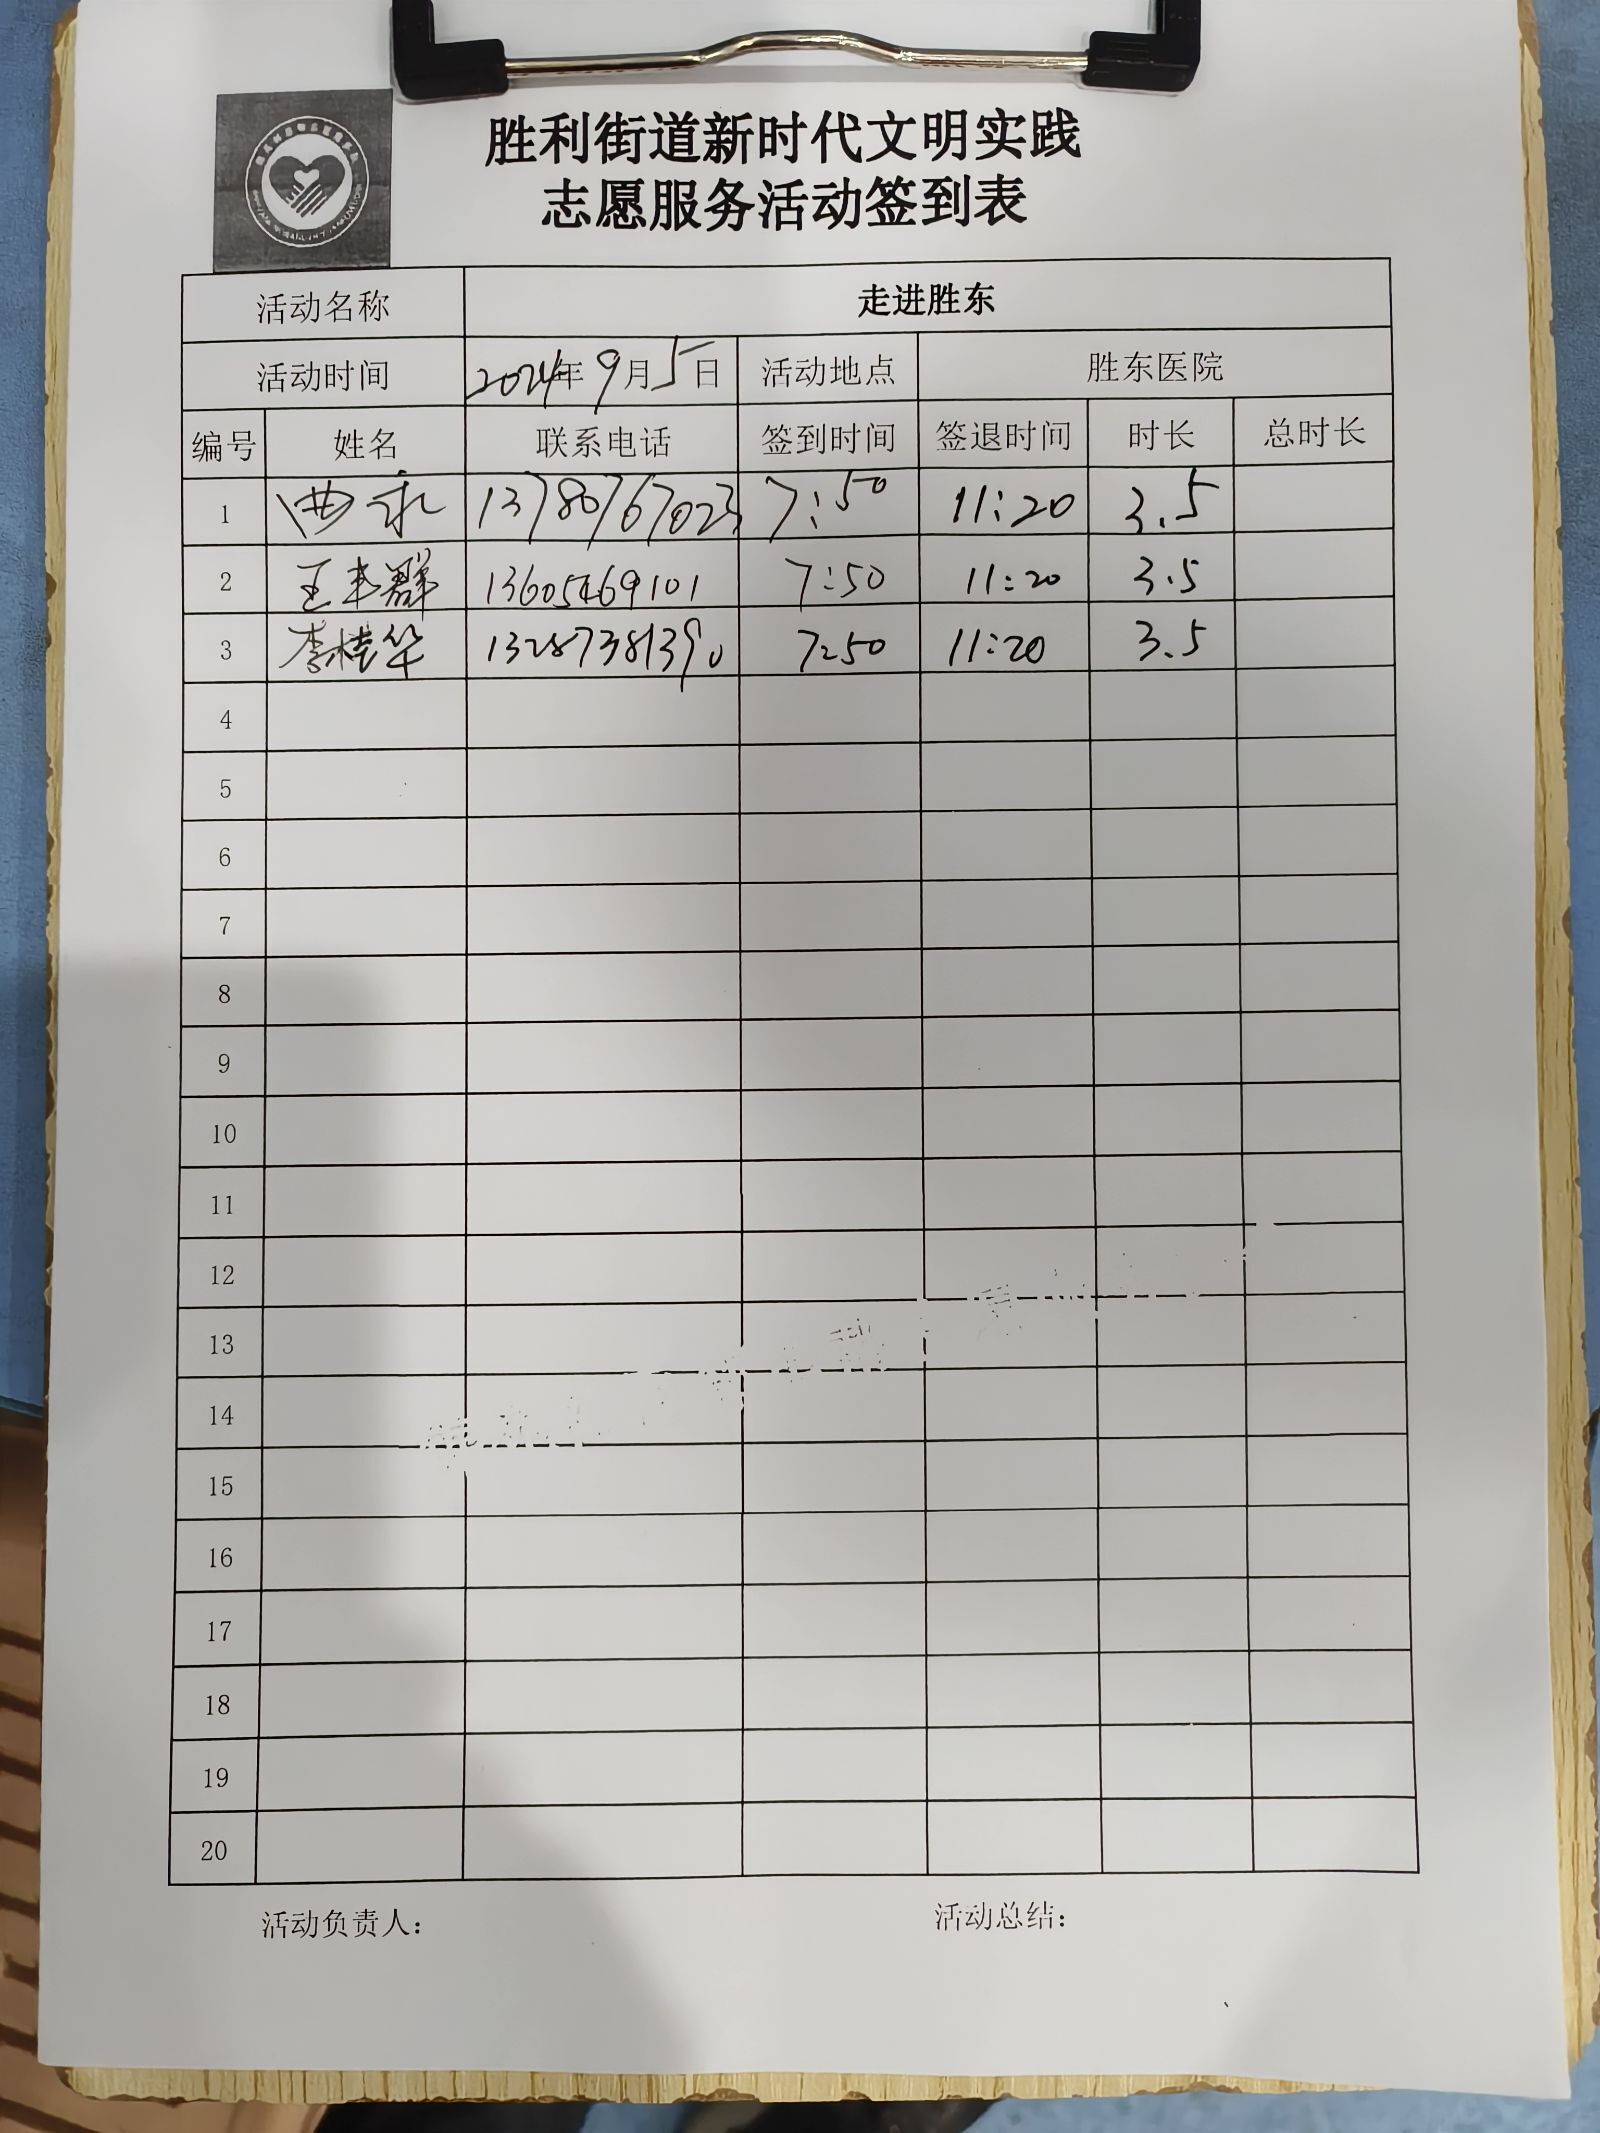 胜利街道新时代文明实践
志愿服务活动签到表
活动名称 走进胜东
活动时间 2024年9月5日 活动地点 胜东医院
编号 姓名 联系电话 签到时间 签退时间 时长 总时长
1 13780767023 7:50 11:20 3.5
2 王丰群 13605469101 7:50 11:20 3.5
3 李桂华 13287381390 7:50 11:20 3.5
4
5
6
7
8
9
10
11
12
13
14
15
16
17
18
19
20
活动负责人： 活动总结：